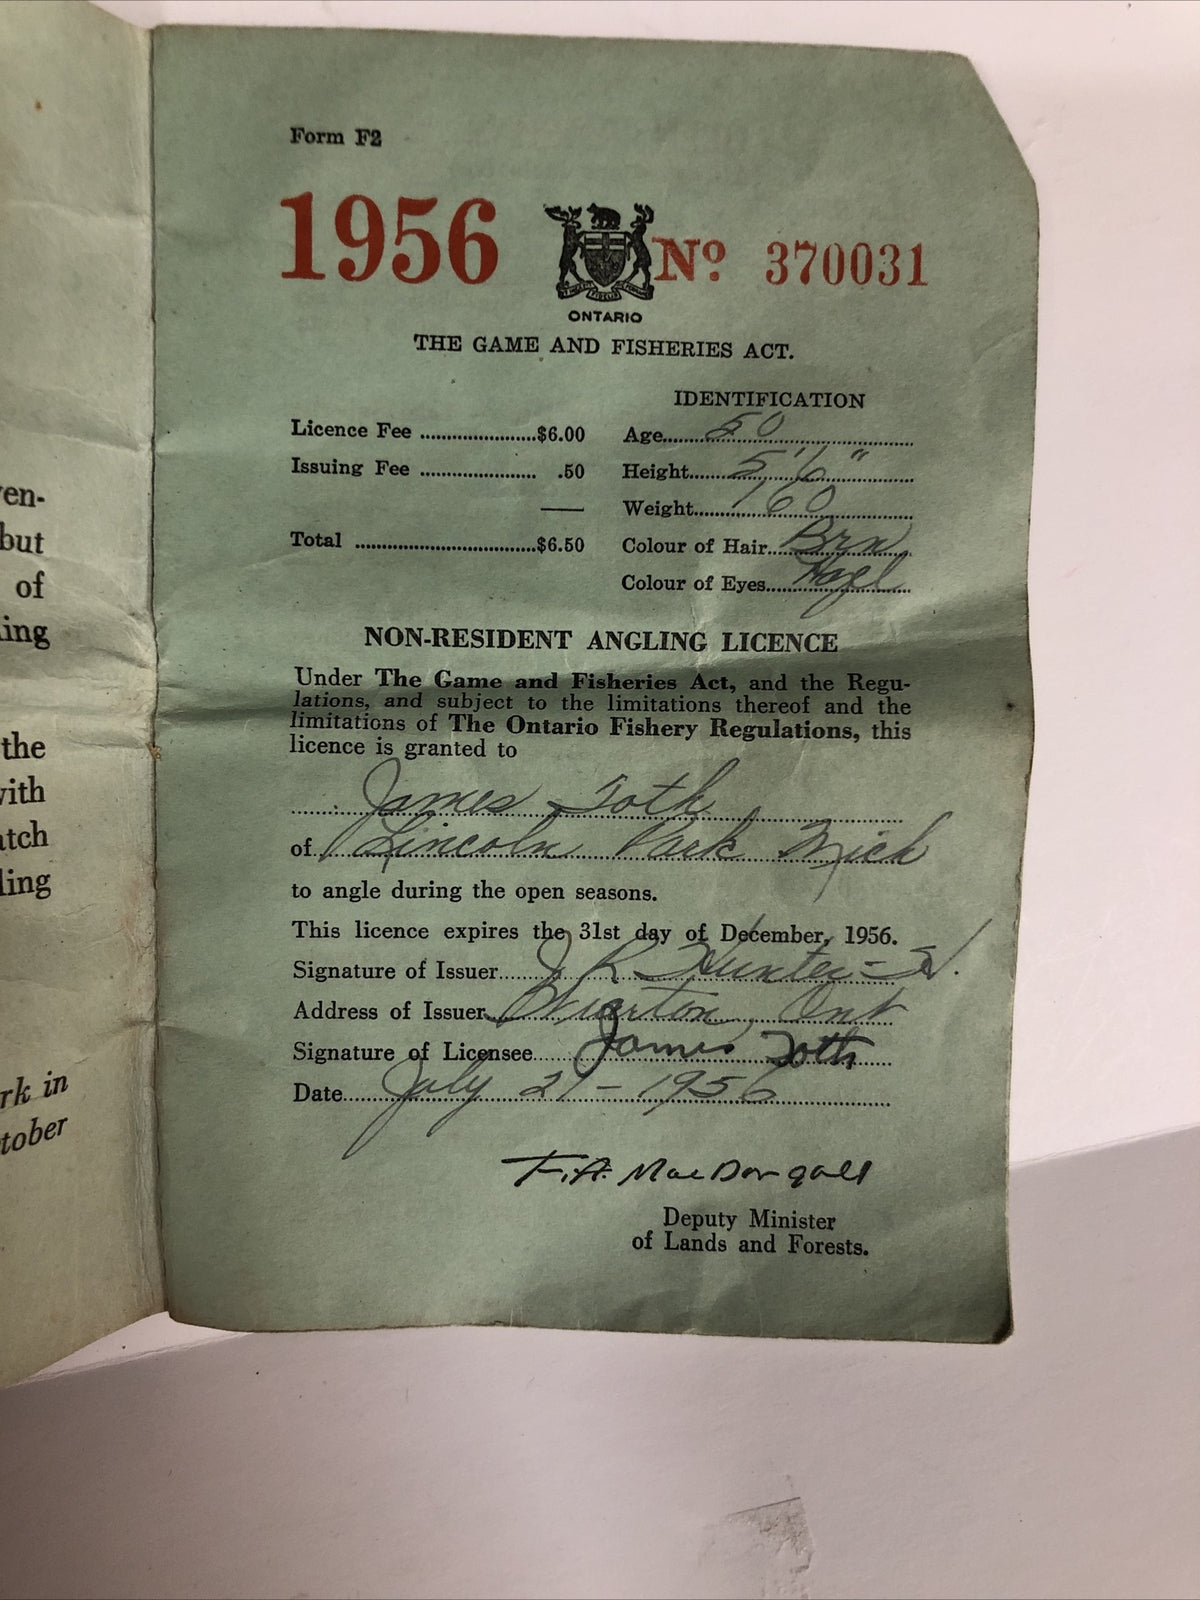 ven-
but
of
ing
the
with
atch
ling
rk in
tober
Form F2
1956 No 370031
ONTARIO
THE GAME AND FISHERIES ACT.
IDENTIFICATION
Licence Fee ......................$6.00
Issuing Fee ...................... .50
Total ..................................$6.50
Age........50
Height......5'6"
Weight......160
Colour of Hair...Brn
Colour of Eyes.....Hazl
NON-RESIDENT ANGLING LICENCE
Under The Game and Fisheries Act, and the Regu-
lations, and subject to the limitations thereof and the
limitations of The Ontario Fishery Regulations, this
licence is granted to
James Toth
of Lincoln Park Mich
to angle during the open seasons.
This licence expires the 31st day of December, 1956.
Signature of Issuer.....J R Hunter
Address of Issuer..Wiarton, Ont
Signature of Licensee.....James Toth
Date.......July 21 - 1956
F.A. MacDougall
Deputy Minister
of Lands and Forests.